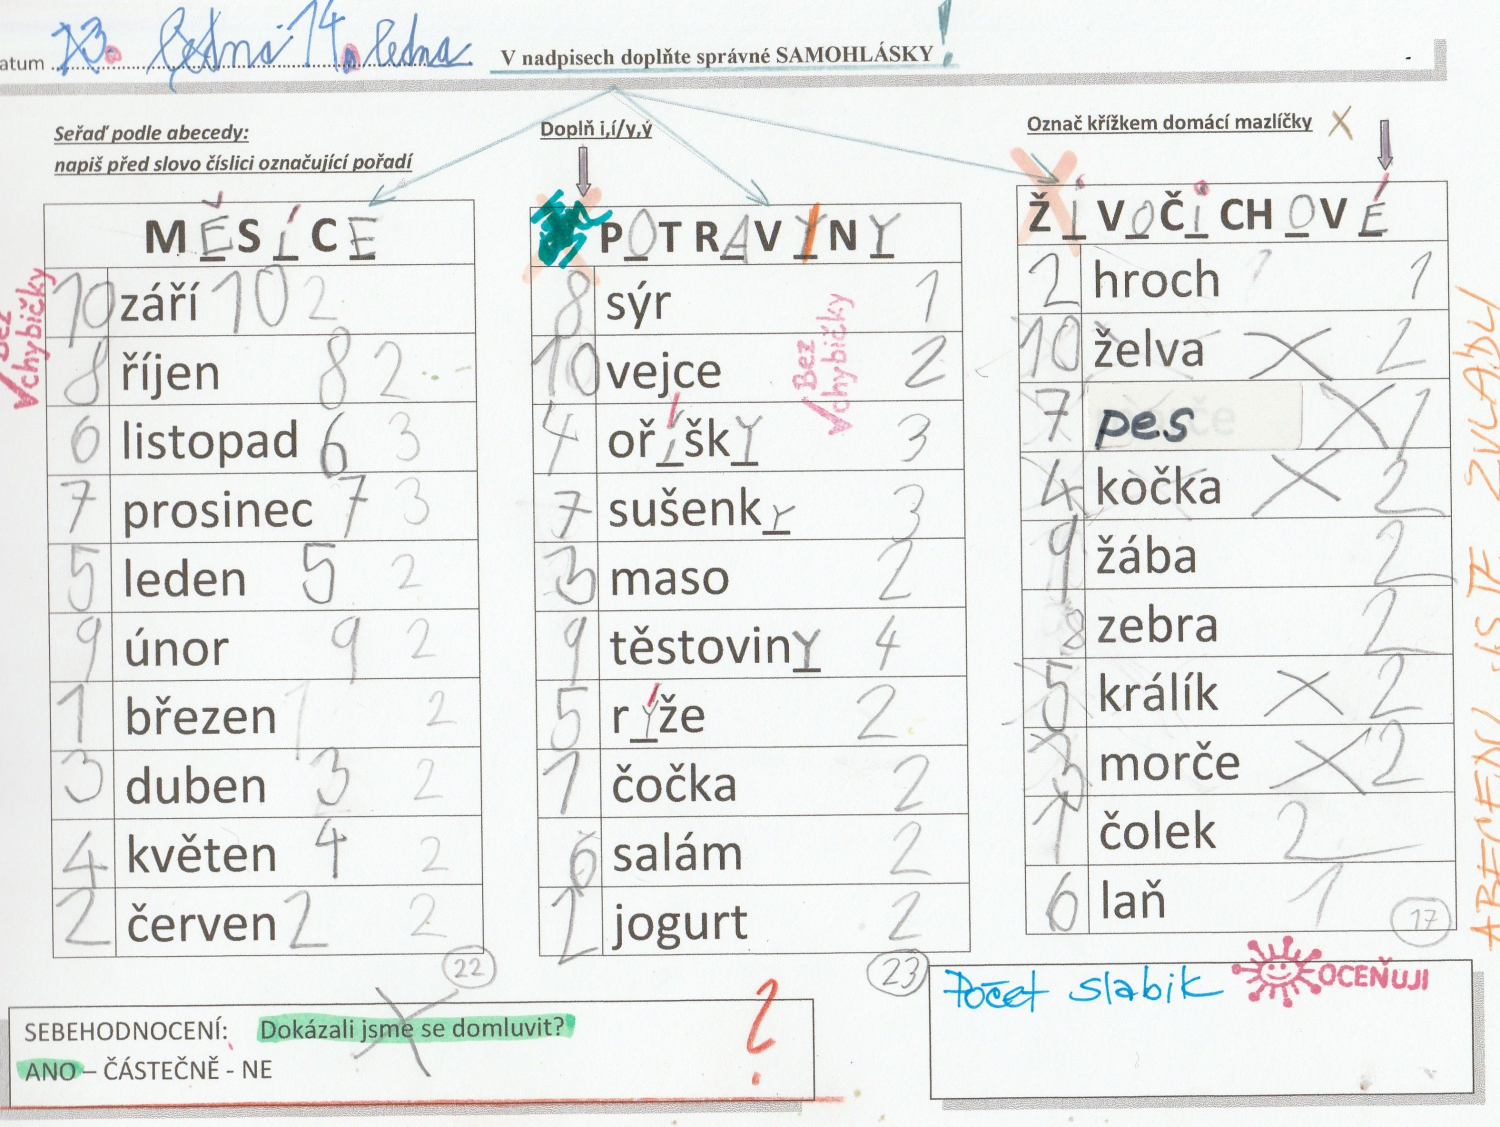 atum 13. ledna 14. ledna V nadpisech doplňte správné SAMOHLÁSKY!
Seřaď podle abecedy:
napiš před slovo číslici označující pořadí
Doplň i,í/y,ý
Označ křížkem domácí mazlíčky X
MĚSÍCE
10 září 10 2
8 říjen 8 2
6 listopad 6 3
7 prosinec 7 3
5 leden 5 2
9 únor 9 2
1 březen 1 2
3 duben 3 2
4 květen 4 2
2 červen 2 2
22
Bez chybičky
POTRAVINY
8 sýr 1
10 vejce 2
4 oříšky 3
7 sušenky 3
3 maso 2
9 těstoviny 4
5 rýže 2
1 čočka 2
6 salám 2
2 jogurt 2
23
Bez chybičky
ŽIVOČICHOVÉ
2 hroch 1
10 želva X 2
7 pes X 1
4 kočka X 2
9 žába 2
8 zebra 2
5 králík X 2
3 morče X 2
1 čolek 2
6 laň 1
17
ABECEDU JSTE ZVLÁDLI
SEBEHODNOCENÍ: Dokázali jsme se domluvit?
ANO – ČÁSTEČNĚ - NE
?
Počet slabik
OCEŇUJI